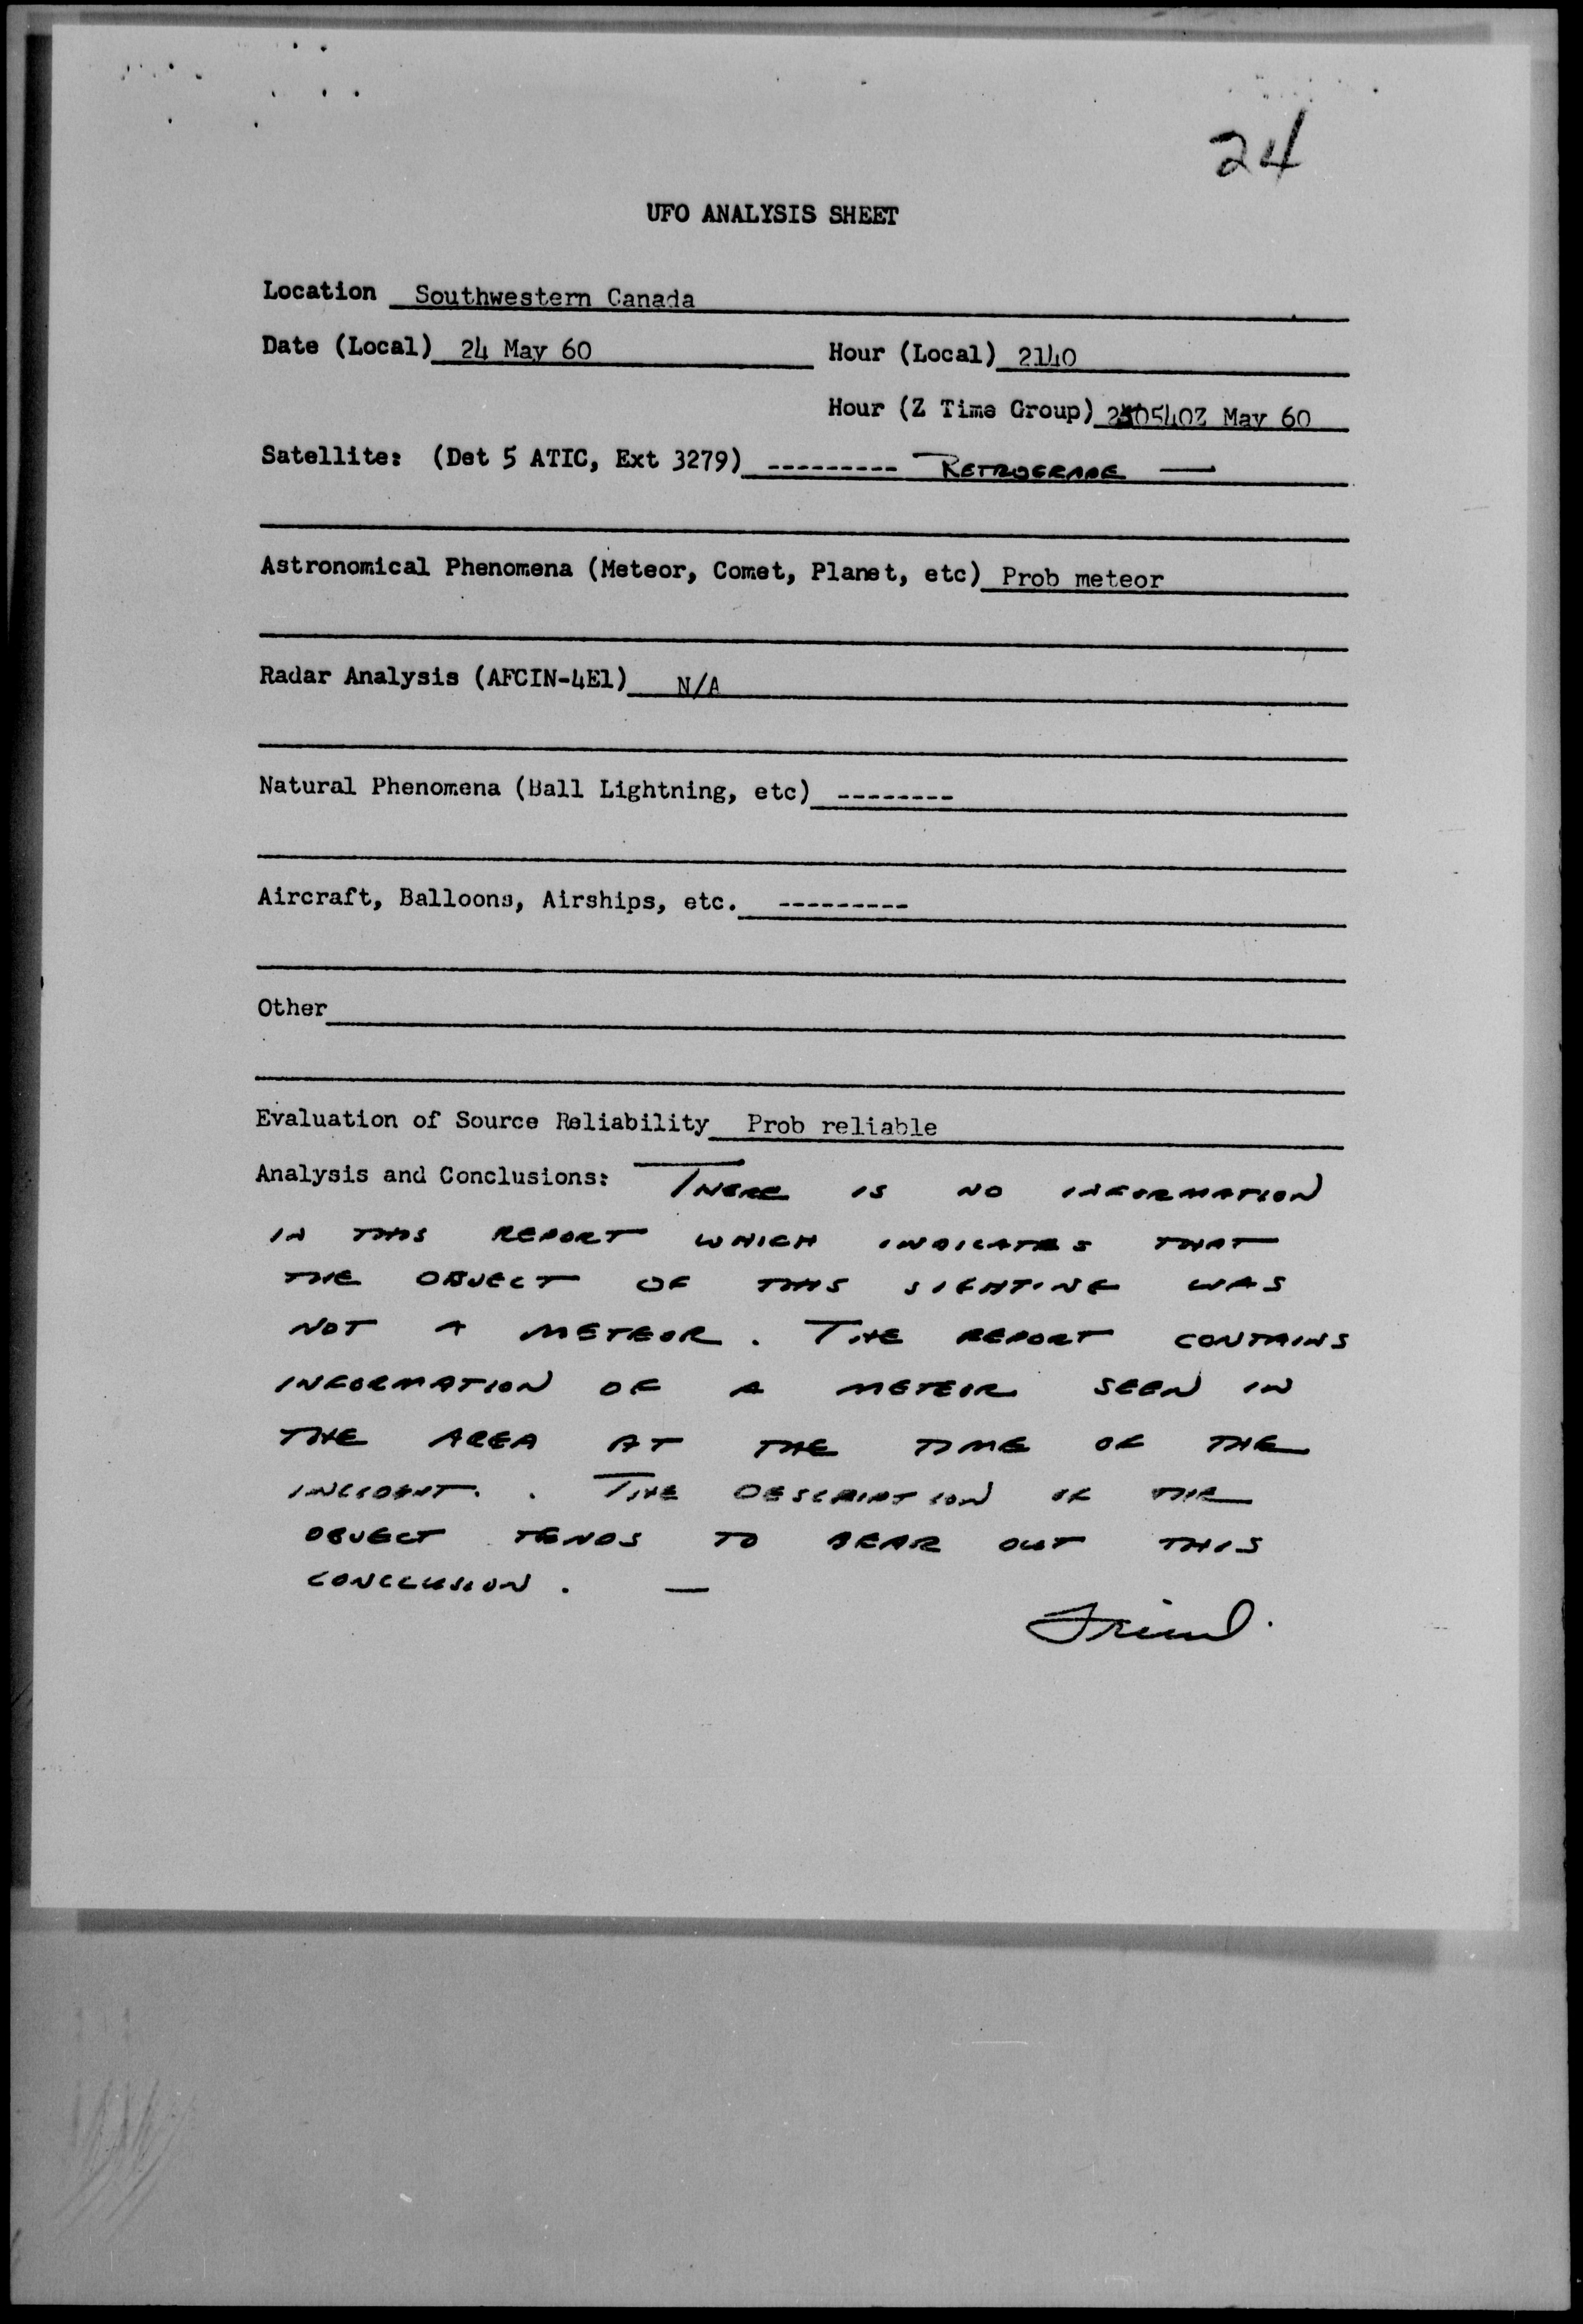 24
UFO ANALYSIS SHEET
Location Southwestern Canada
Date (Local) 24 May 60 Hour (Local) 2140
Hour (Z Time Group) 250540Z May 60
Satellite: (Det 5 ATIC, Ext 3279) --------- RETROGRADE —
Astronomical Phenomena (Meteor, Comet, Planet, etc) Prob meteor
Radar Analysis (AFCIN-4E1) N/A
Natural Phenomena (Ball Lightning, etc) --------
Aircraft, Balloons, Airships, etc. ---------
Other
Evaluation of Source Reliability Prob reliable
Analysis and Conclusions: THERE IS NO INFORMATION
IN THIS REPORT WHICH INDICATES THAT
THE OBJECT OF THIS SIGHTING WAS
NOT A METEOR. THE REPORT CONTAINS
INFORMATION OF A METEOR SEEN IN
THE AREA AT THE TIME OF THE
INCIDENT. THE DESCRIPTION OF THE
OBJECT TENDS TO BEAR OUT THIS
CONCLUSION. —
Friend.